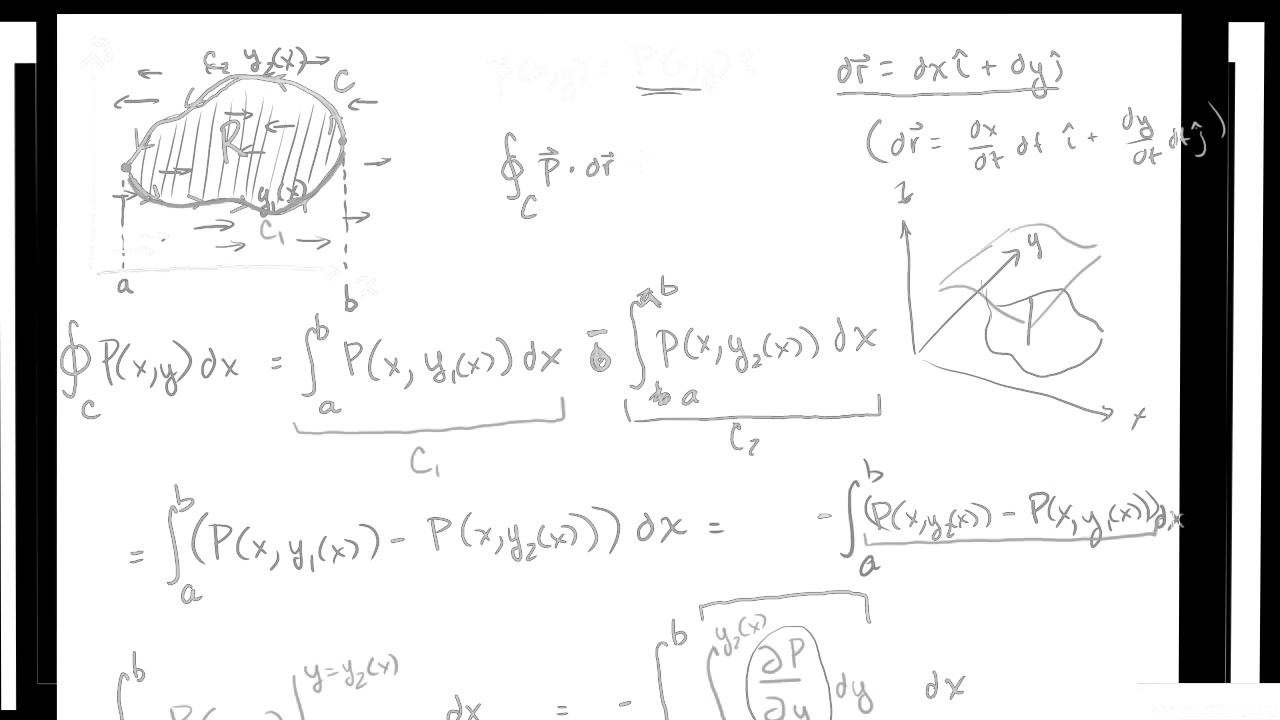 C₂ y₂(x)
C
R
y₁(x)
C₁
a
b
P(x,y) = P(x,y) î
∮_C P⃗ · dr⃗
dr⃗ = dx î + dy ĵ
(dr⃗ = dx/dt dt î + dy/dt dt ĵ)
z
y
x
∮_C P(x,y) dx = ∫_a^b P(x, y₁(x)) dx - ∫_a^b P(x, y₂(x)) dx
C₁
C₂
= ∫_a^b (P(x, y₁(x)) - P(x, y₂(x))) dx = - ∫_a^b (P(x, y₂(x)) - P(x, y₁(x))) dx
∫^b |^{y=y₂(x)} dx = - ∫^b ∫^{y₂(x)} ∂P/∂y dy dx